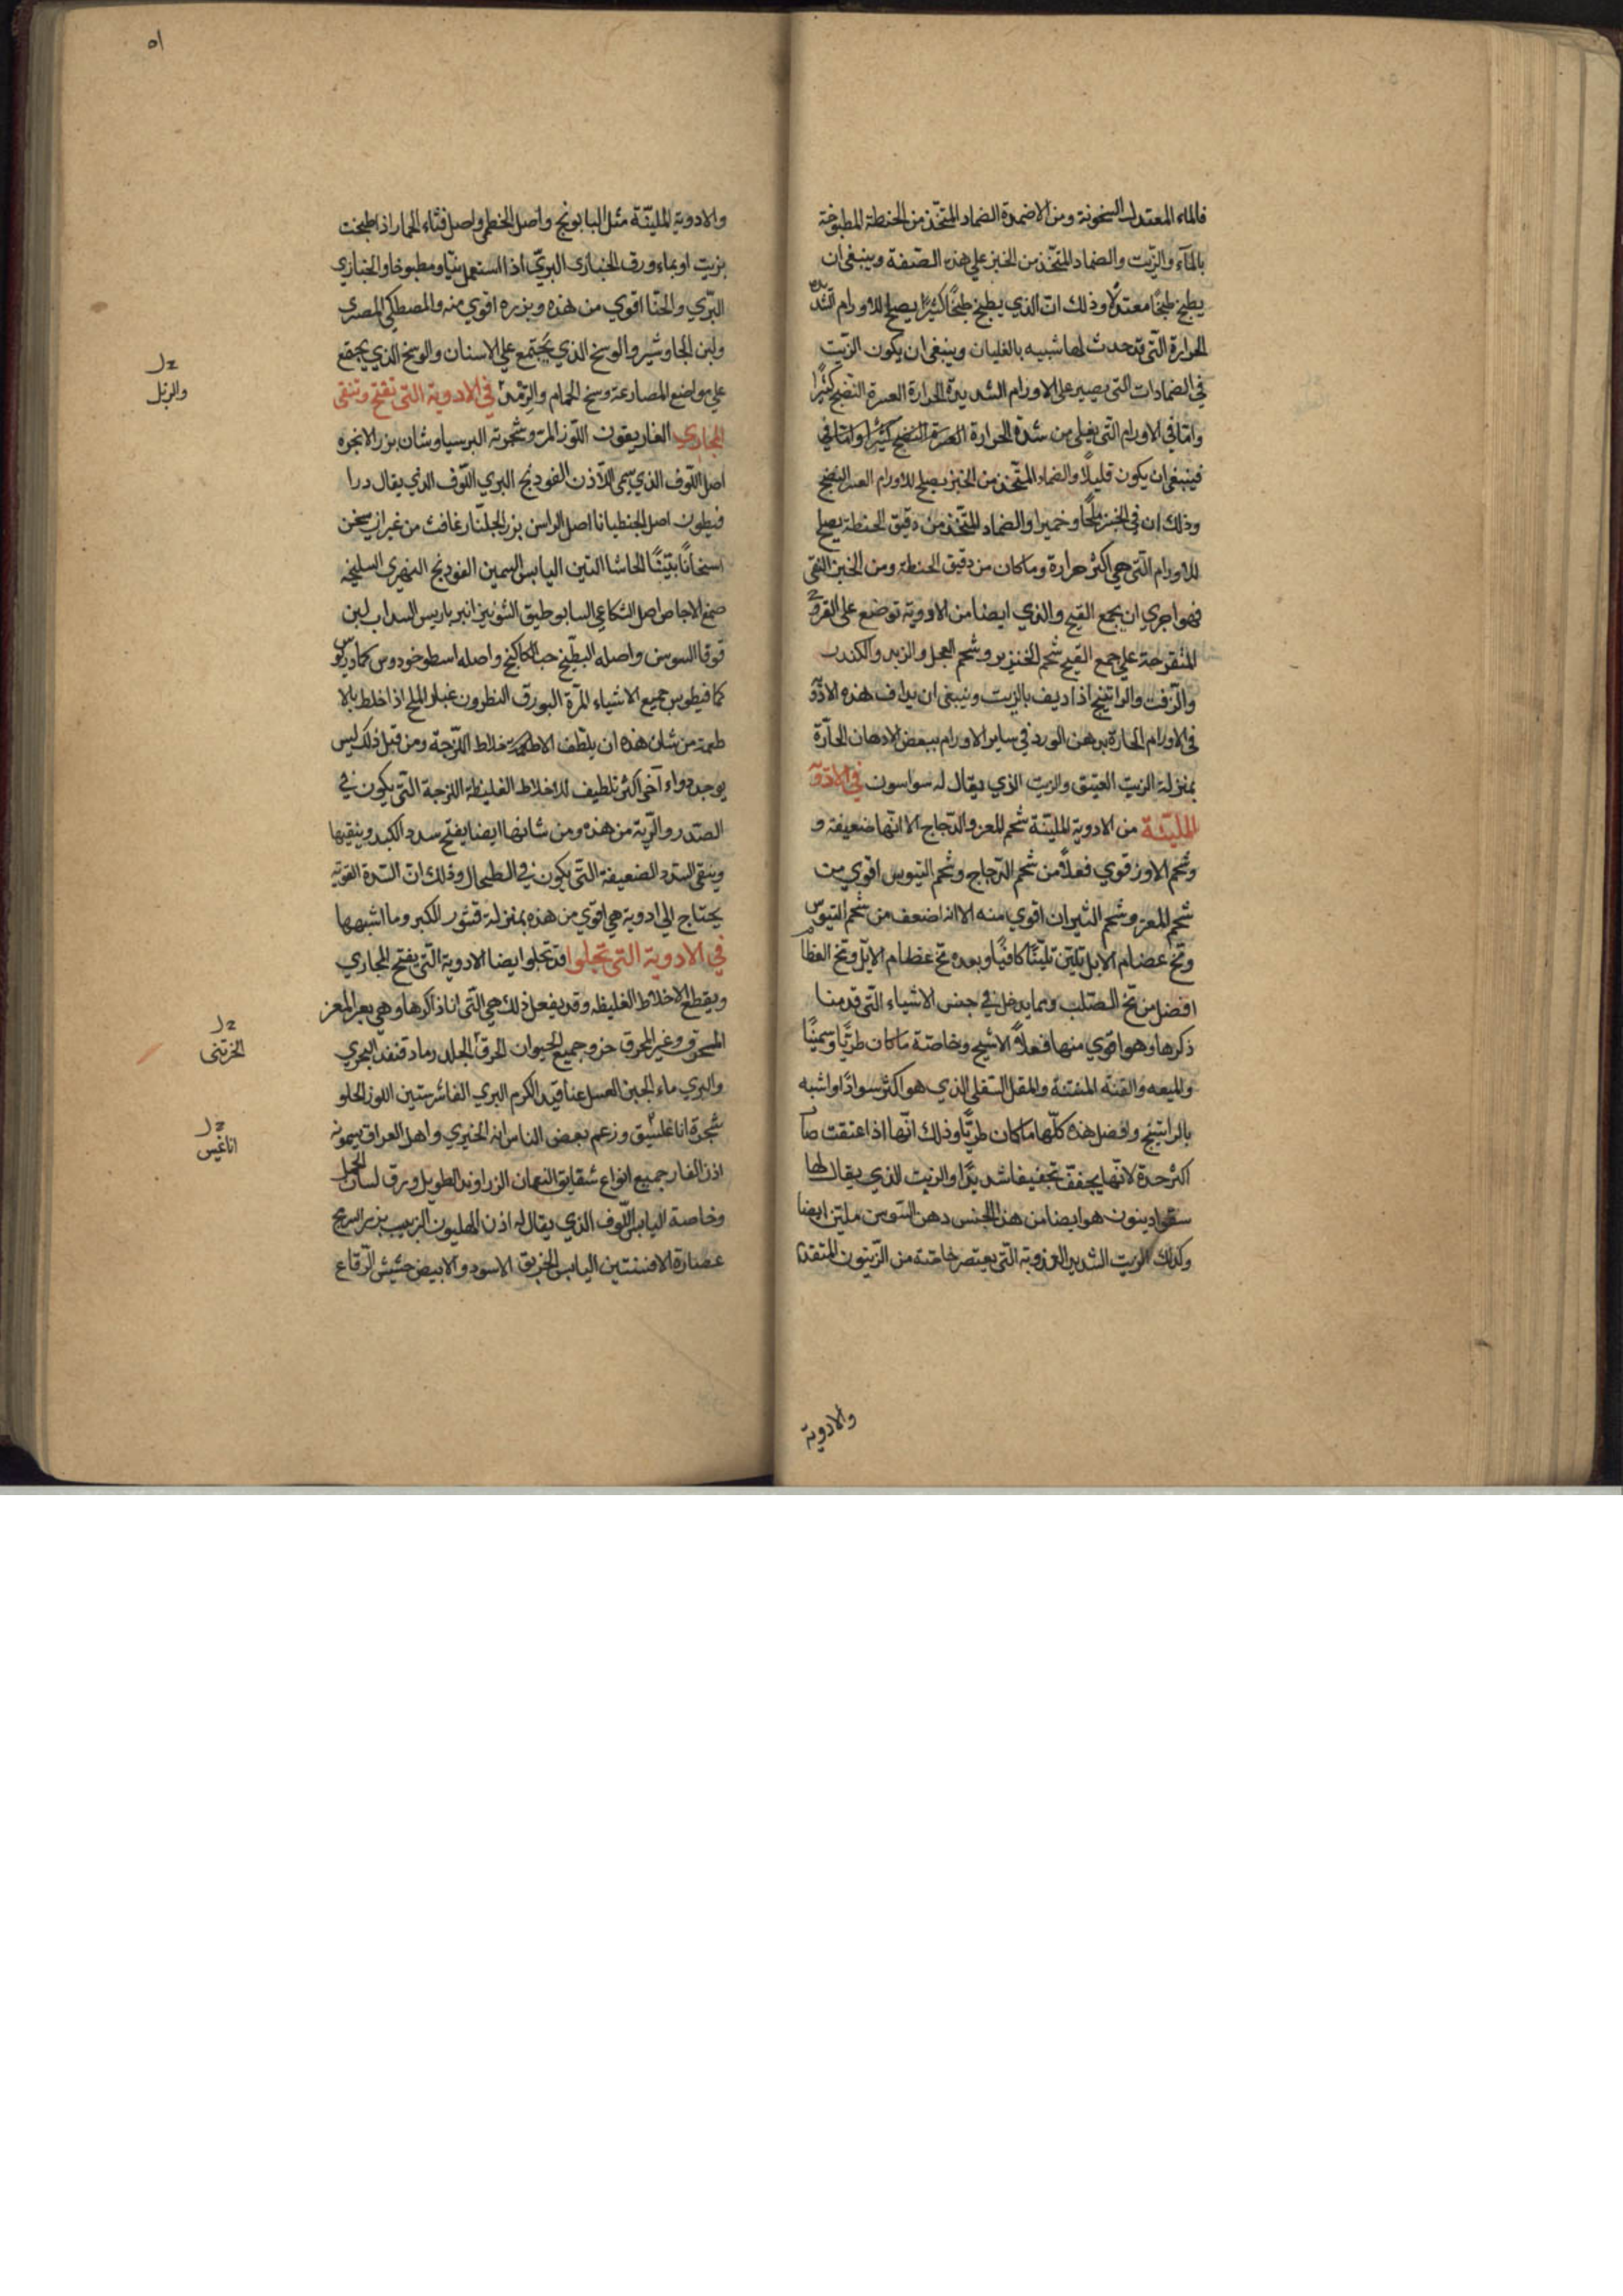 فالماء المعتدل السخونة ومن الاضمدة الضماد المتخذ من الحنطة المطبوخة
بالمآء والزيت والضماد المتخذ من الخبز علي هذه الصفة وينبغي ان
يطبخ طبخًا معتدلًا وذلك ان الذي يطبخ طبخًا كثيرًا يصلح للاورام
الحرارة التي قد حدث لها شبيه بالغليان وينبغي ان يكون الزيت
في الضمادات التي يصير على الاورام الشديدة الحرارة العسرة النضج كثيرًا
واما في الاورام التي يغلي من شدة الحرارة العسرة النضج كثيرا واما في
فينبغي ان يكون قليلًا والضماد المتخذ من الخبز يصلح للاورام العسر النضج
وذلك ان في الخبز ملحًا وخميرا والضماد المتخذ من دقيق الحنطة يصلح
للاورام التي هي اكثر حرارة وما كان من دقيق الحنطة ومن الخبز النقي
فهو اجري ان يجمع القيح والذي ايضا من الادوية توضع علي القروح
المتقرحة علي جمع القيح شحم الخنزير وشحم العجل والزبد والكندر
والزفت والراتينج اذا ديف بالزيت وينبغي ان يداف هذه الادوية
في الاورام الحارة بدهن الورد في ساير الاورام ببعض الادهان الحارة
بمنزلة الزيت العتيق والزيت الذي يقال له سواسون في الادوية
المليّنة من الادوية المليّنة شحم المعز والدجاج الا انها ضعيفة و
وشحم الاوز قوي فعلًا من شحم الدجاج وشحم التيوس اقوي من
شحم المعز وشحم الثيران اقوي منه الا انه اضعف من شحم التيوس
ومخ عضام الابل تليّن تليّنًا كافيًا وبعده مخ عظام الايّل ومخ العظام
افضل من مخ الصلب ومما يدخل في جنس الاشياء التي قدمنا
ذكرها وهو اقوي منها فعلًا الاشج وخاصّة ما كان طريًا وسمينًا
والميعه والقنه المنتنة والمقل السقلي الذي هو اكثر سوادًا واشبه
بالراتينج وافضل هذه كلها ما كان طريًا وذلك انها اذا عتقت صار
اكثر حدة لانها يجفف تجفيفا شديدًا والزيت الذي يقال لها
سقوادينون هو ايضا من هذا الجنس دهن السوسن ملين ايضا
وكذلك الزيت الشديد العذوبة التي يعتصر خاصّة من الزيتون المتقدم
والادوية
٥١
والادوية المليّنة مثل البابونج واصل الخطمي واصل قثاء الحمار اذا طبخت
بزيت او بماء ورق الخبازي البري اذا استعمل نيّا ومطبوخا والخبازي
البرّي والحنا اقوي من هذه وبزره اقوي منه والمصطكي المصري
ولبن الجاوشير والوسخ الذي يجتمع علي الاسنان والوسخ الذي يجتمع
علي مواضع المصارعة وسخ الحمام في الادوية التي تفتح وتنقي
المجاري الغاريقون اللوز المر وشجرته البرسياوشان بزر الانجره
اصل اللوف الذي يسمى الاذن الفودنج البري اللوف الذي يقال درا
قيطون اصل الجنطيانا اصل الراسن بزر الجلنار غافث من غير ان يسخن
اسخانًا بيّنًا الحاشا التين اليابس السمين الفودنج النهري السليخه
صمغ الاجاص اصل الشكاعي السابوطيق الشونيز انبرباريس السداب لبن
قوقا السوسن واصله البطيخ حب الكاكنج واصله اسطوخودوس كمادريوس
كمافيطوس جميع الاشياء المرّة البورق النطرون عسل الملح اذا خلط بالا
طمة من شان هذه ان يلطف الاخلاط اللزجة ومن قبل ذلك ليس
يوجد دواء آخر اكثر تلطيف للاخلاط الغليظة اللزجة التي يكون في
الصدر والرّية من هذه ومن شانها ايضا يفتح سدد الكبد وينقيها
وينقي السدد الضعيفة التي يكون في الطحال وذلك ان السدة القوية
يحتاج الي ادوية هي اقوي من هذه بمنزلة قشور الكبر وما اشبهها
في الادوية التي تجلوا قد تجلوا ايضا الادوية التي يفتح المجاري
ويقطع الاخلاط الغليظه وقد يفعل ذلك هي التي انا ذاكرها وهي بعر المعز
المحروق وغير المحرق خزو جميع الحيوان المحرق الجلد رماد قنفذ البحري
والبري ماء الجبن العسل عناقيد الكرم البري الفاشرستين اللوز الحلو
شجرة اناغلشيق وزعم بعض الناس انه الخيري واهل العراق يسمونه
اذن الفار جميع انواع شقايق النعمان الزراوند الطويل ورق لسان الحمل
وخاصة اليابس اللوف الذي يقال له اذن الهليون الزبيب بزر السريج
عصارة الافسنتين اليابس الخربق الاسود والابيض حشيش الرقاع
والزبل
اناغيس